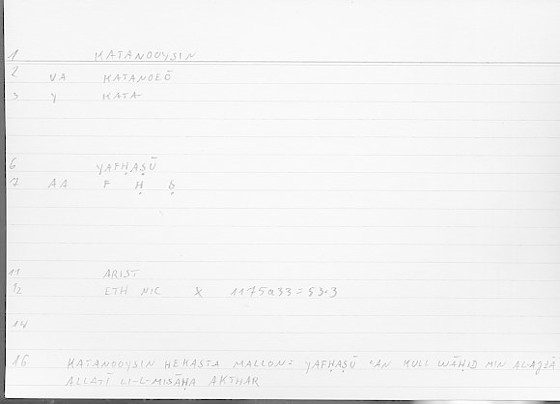 1 KATANOOYSIN
2 VA KATANOEŌ
3 Y KATA-
6 YAFḤAṢŪ
7 AA F Ḥ Ṣ
11 ARIST
12 ETH NIC X 1175a33 = 53.3
14
16 KATANOOYSIN HEKASTA MALLON = YAFḤAṢŪ ʿAN KULL WĀḤID MIN
ALLATĪ LI-L-MISĀḤA AKTHAR